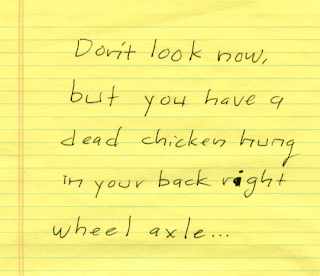 Don't look now,
but you have a
dead chicken hung
in your back right
wheel axle...